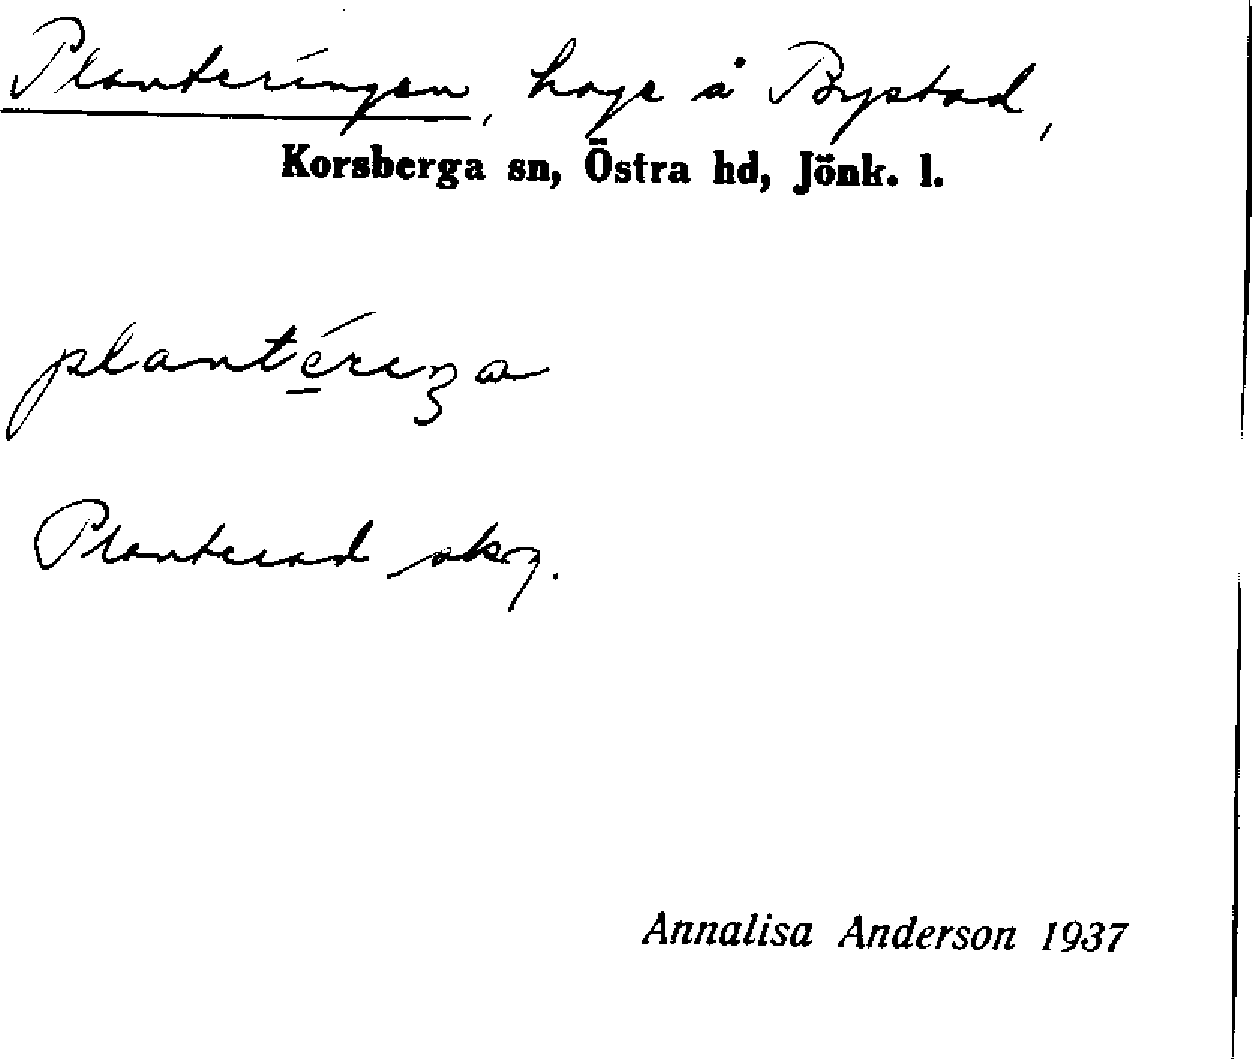 Planteringen, hage å Bystad,
Korsberga sn, Östra hd, Jönk. l.
plantériŋa
Planterad skog.
Annalisa Anderson 1937